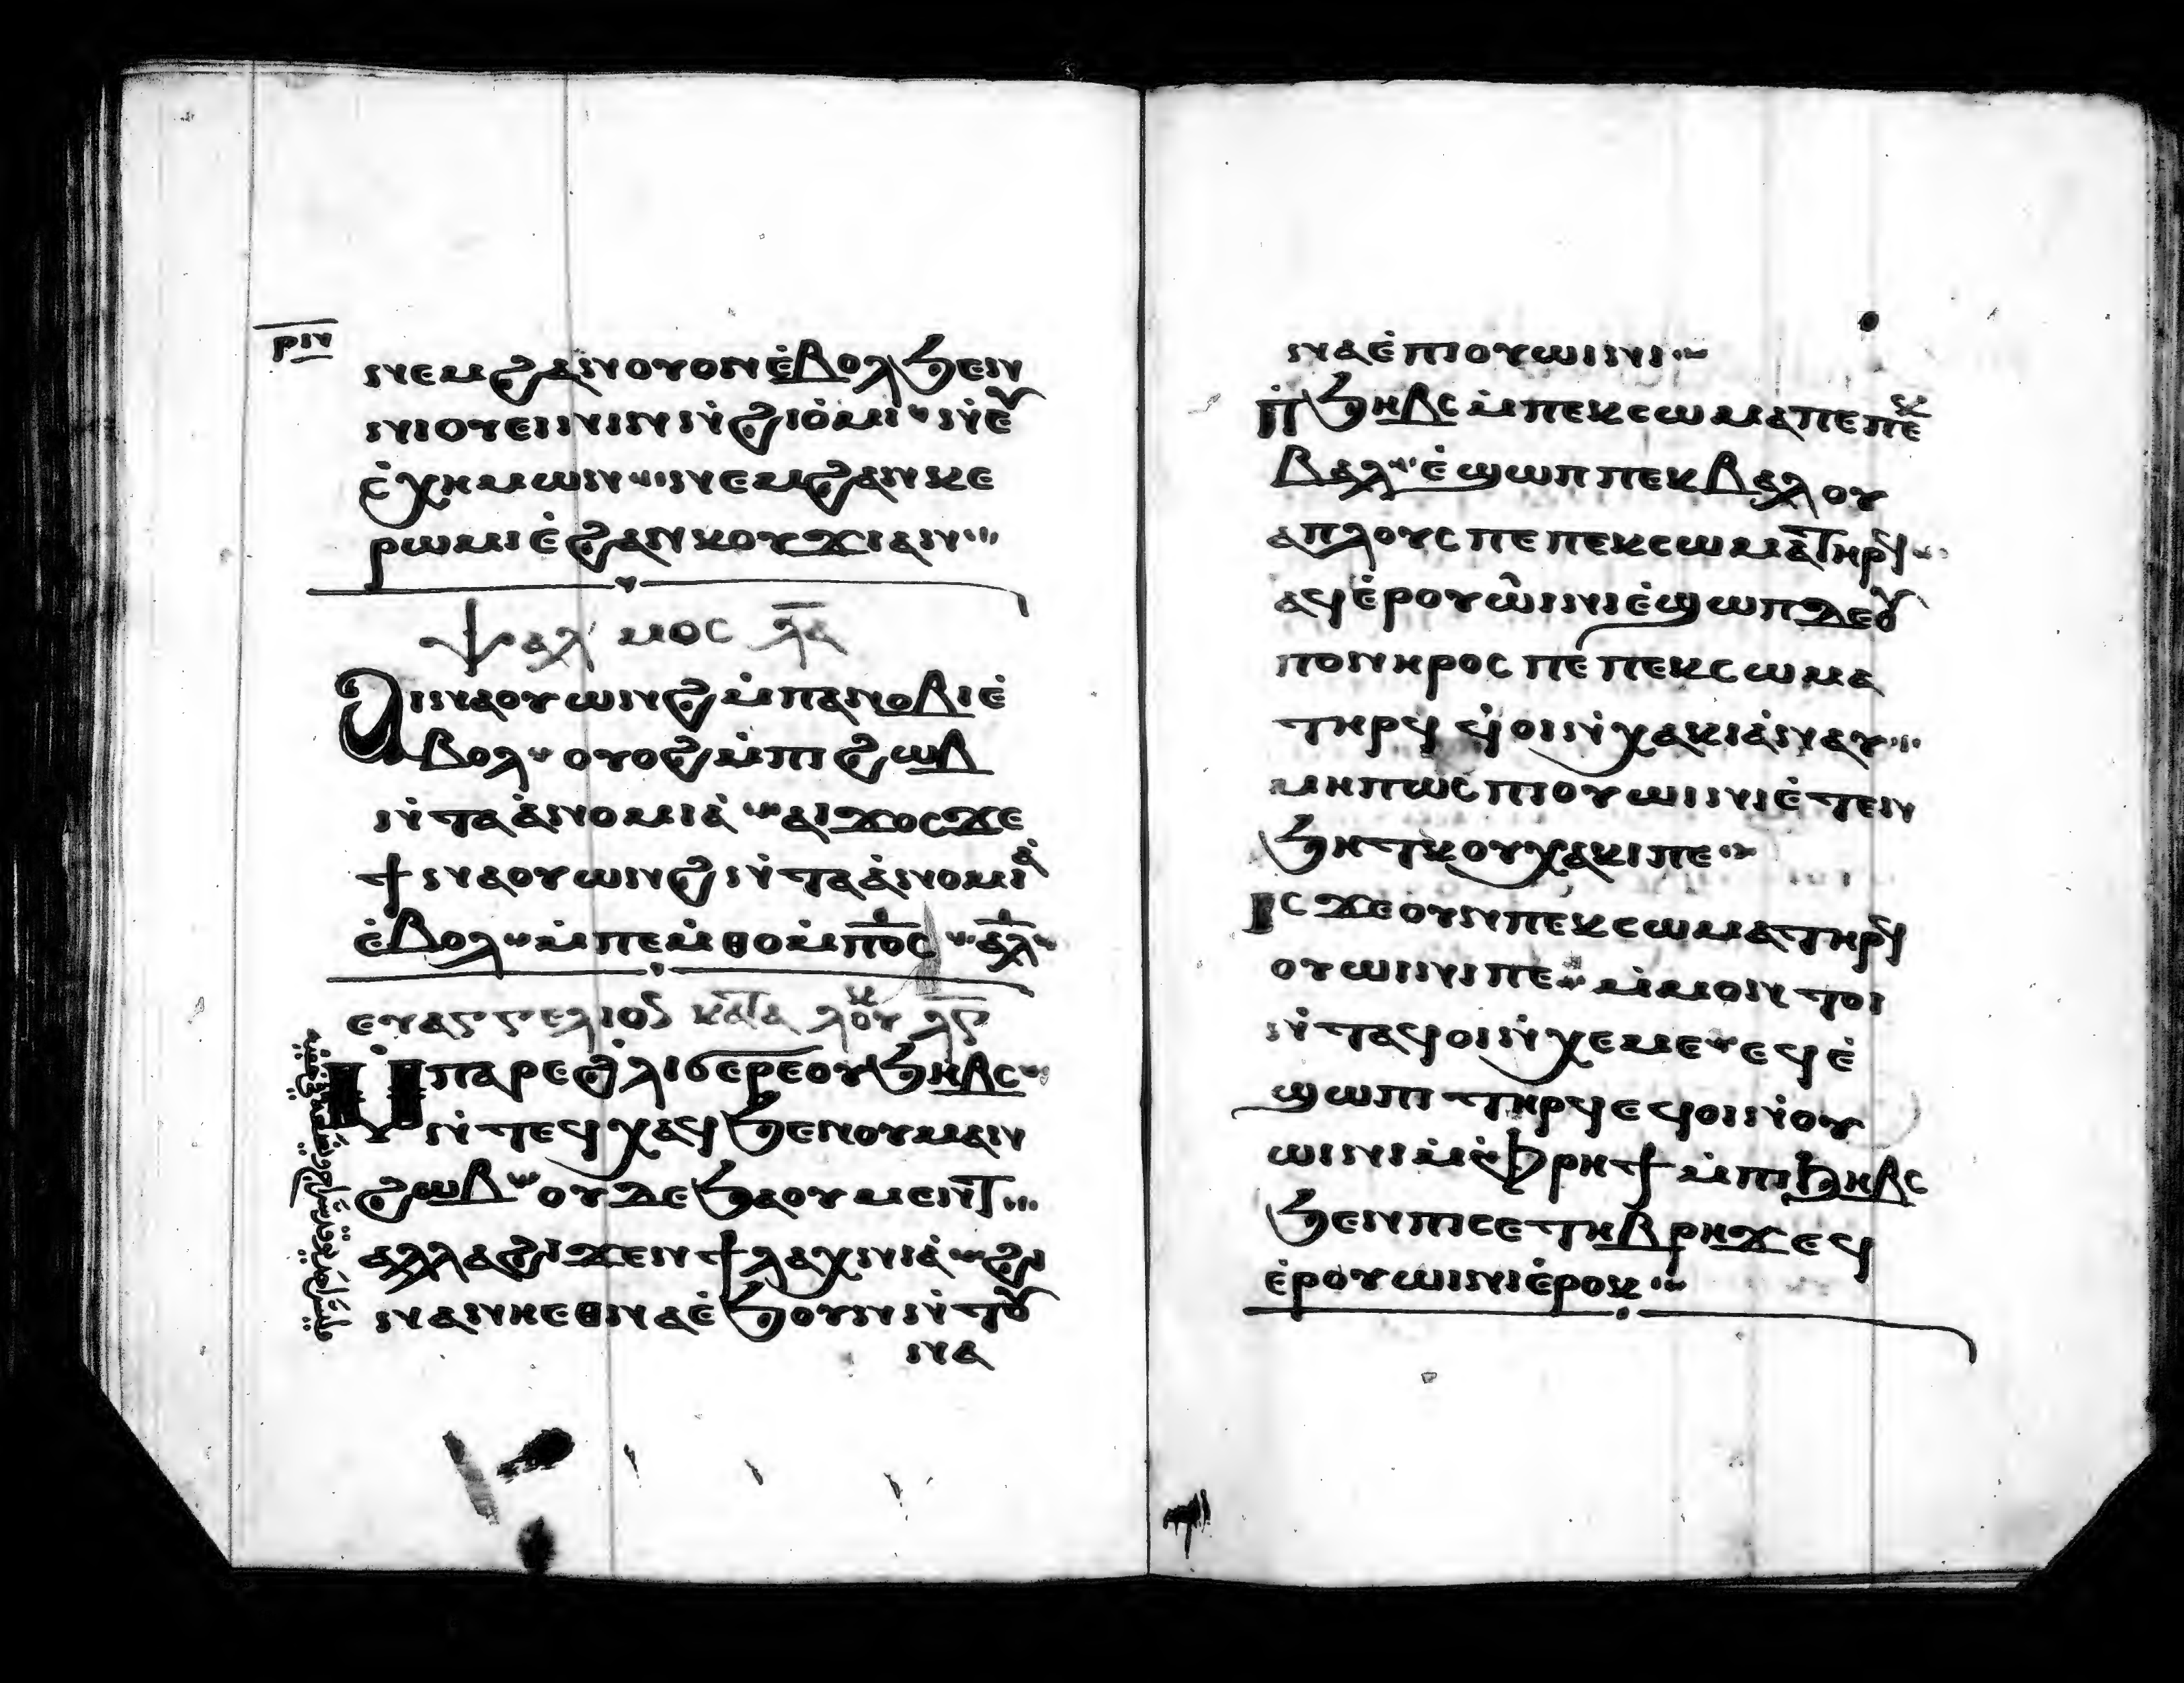 ⲣⲓⲛ
ⲛⲉⲙϩⲁⲛⲟⲩⲟⲛⲉ̇ⲃⲟⲗϧⲉⲛ
ⲛⲓⲟⲩⲉⲓⲛⲓⲛⲛ̇ϩⲓⲟ̇ⲙⲓ ⲛ̇ⲉⲩ
ⲉ̇ⲥⲭⲏⲙⲱⲛ ⲛⲉⲙϩⲁⲛⲕⲉ
ⲣⲱⲙⲓⲉ̇ϩⲁⲛⲕⲟⲩϫⲓⲁⲛ
ⲯⲁⲗⲙⲟⲥ ⲗ̅ⲁ̅
ϯⲓⲛⲁⲟⲩⲱⲛϩⲙ̇ⲡⲁⲛⲟⲃⲓⲉ̇
ⲃⲟⲗ ⲟⲩⲟϩⲙ̇ⲡⲓϩⲱⲃ
ⲛ̇ⲧⲁⲁ̇ⲛⲟⲙⲓⲁ̇ ⲁⲓϫⲟⲥϫⲉ
ϯⲛⲁⲟⲩⲱⲛϩⲛ̇ⲧⲁⲁ̇ⲛⲟⲙⲓⲁ̇
ⲉ̇ⲃⲟⲗ ⲙ̇ⲡⲉⲙ̇ⲑⲟⲙ̇ⲡⲟ̅ⲥ̅ ⲁ̅ⲗ̅
ⲉⲩⲁⲅⲅⲉⲗⲓⲟⲛ ⲕⲁⲧⲁ ⲗⲟⲩⲕ ⲗ̅ⲋ̅
ⲙ̇ⲡⲁⲣⲉϩ̇ⲗⲓϭⲉⲣⲉⲟⲩϧⲏⲃⲥ
ⲛ̇ⲧⲉϥⲭⲁϥϧⲉⲛⲟⲩⲙⲁⲛ
ϩⲱⲃ ⲟⲩⲇⲉϧⲁⲟⲩⲙⲉⲛⲧ
ⲁⲗⲗⲁϩⲓϫⲉⲛϯⲗⲁⲭⲛⲓⲁ̇ ϩⲓ
ⲛⲁⲛⲏⲉⲑⲛⲁⲉ̇ϧⲟⲩⲛⲛ̇ⲧⲟⲩ
ⲛⲁ
ⲛⲁⲉ̇ⲡⲓⲟⲩⲱⲓⲛⲓ
ⲡ̇ϧⲏⲃⲥⲙ̇ⲡⲉⲕⲥⲱⲙⲁⲡⲉⲡⲉⲕ
ⲃⲁⲗ ⲉ̇ϣⲱⲡⲡⲉⲕⲃⲁⲗⲟⲩ
ⲁⲡⲗⲟⲩⲥⲡⲉⲡⲉⲕⲥⲱⲙⲁⲧⲏⲣϥ
ⲁϥⲉ̇ⲣⲟⲩⲱ̇ⲓⲛⲓⲉ̇ϣⲱⲡⲇⲉⲟⲩ
ⲡⲟⲛⲏⲣⲟⲥⲡⲉⲡⲉⲕⲥⲱⲙⲁ
ⲧⲏⲣϥ ϥ̇ⲟⲓⲛ̇ⲭⲁⲕⲓⲁ̇ⲛⲁⲩ
ⲙⲏⲡⲱⲥⲡⲓⲟⲩⲱⲓⲛⲓⲉ̇ⲧⲉⲛ
ϧⲏⲧⲕⲟⲩⲭⲁⲕⲓⲡⲉ
ⲓⲥϫⲉⲟⲩⲛⲡⲉⲕⲥⲱⲙⲁⲧⲏⲣϥ
ⲟⲩⲱⲓⲛⲓⲡⲉ ⲙ̇ⲙⲟⲛⲧⲟⲓ
ⲛ̇ⲧⲁϥⲟⲓⲛ̇ⲭⲉⲙⲉ ⲉϥⲉ̇
ϣⲱⲡⲓⲧⲏⲣϥⲉϥⲟⲓⲛ̇ⲟⲩ
ⲱⲓⲛⲓⲙ̇ⲫⲣⲏϯⲙ̇ⲡⲓϧⲏⲃⲥ
ϧⲉⲛⲡⲓⲥⲉⲧⲏⲃⲣⲏϫⲉϥ
ⲉ̇ⲣⲟⲩⲱⲓⲛⲓⲉ̇ⲣⲟⲕ